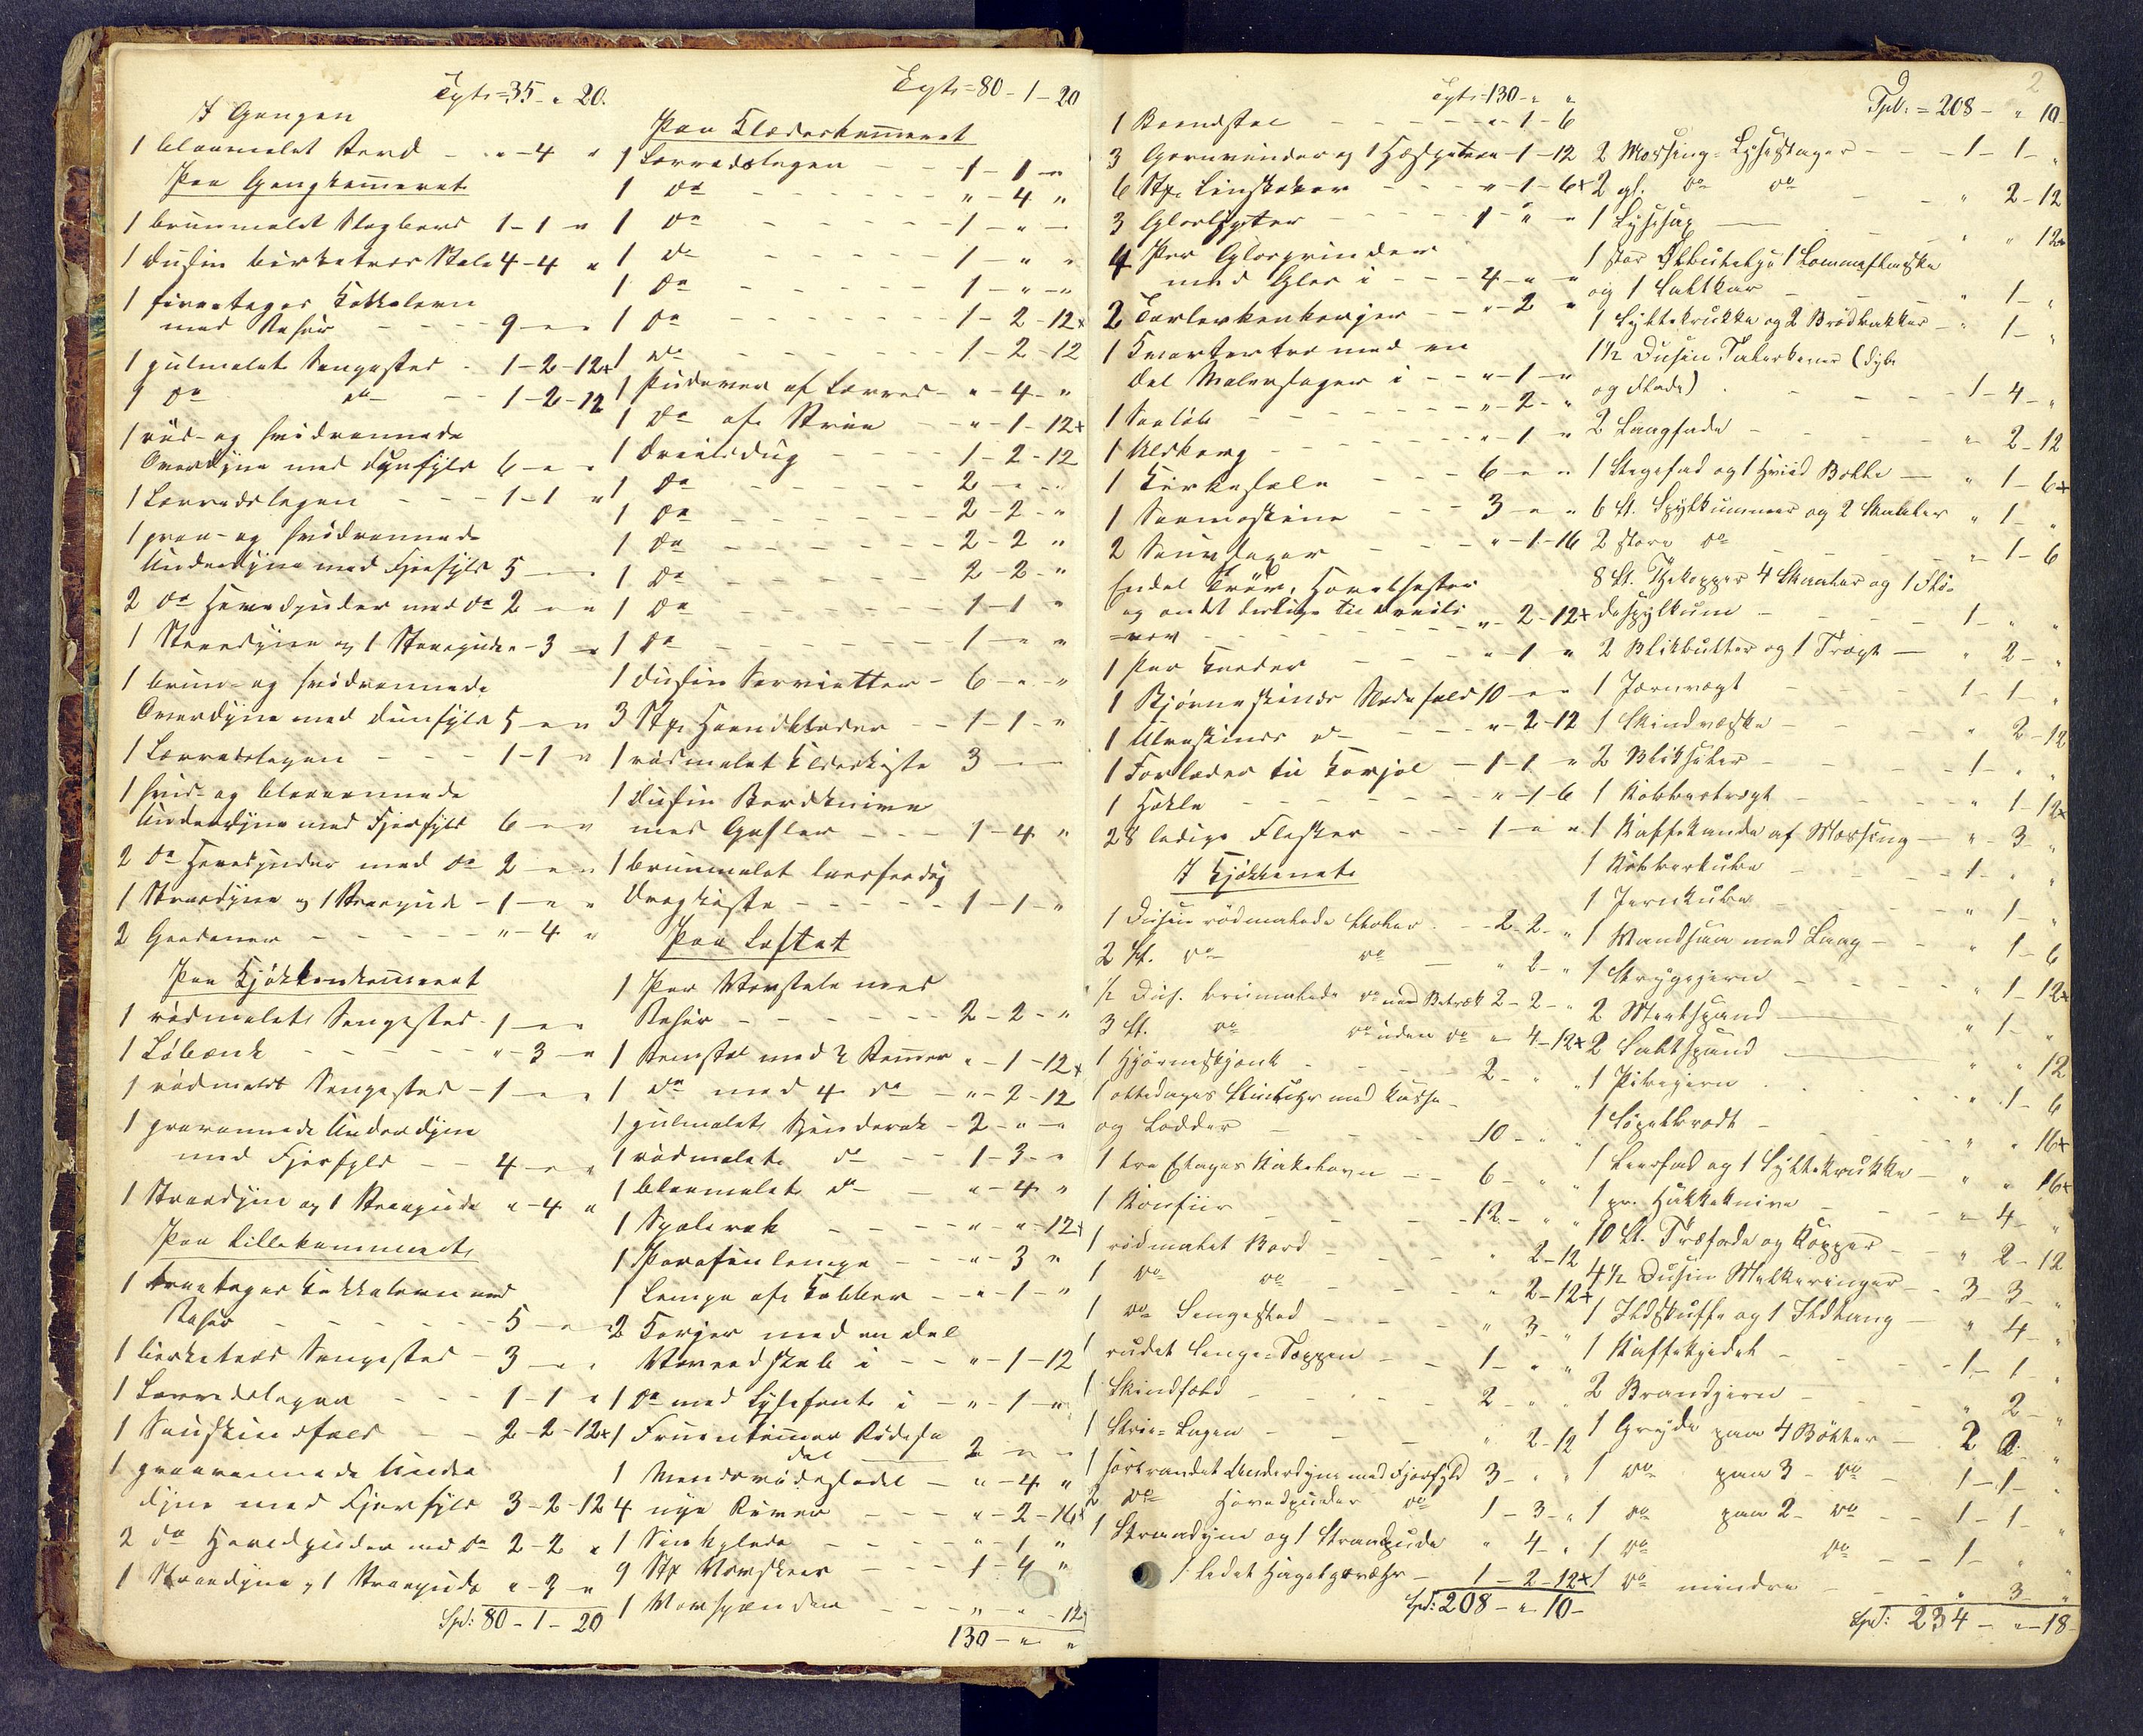 Tpt: = 35 - " 20.
I Gangen
1 blaamalet Bord - " - 4 "
Paa Gangkammeret
1 brunmalet Slagbord 1 - 1 "
1 Dusin birketræs Stole 4 - 4 "
1 fireetages Kakkelovn
med Rahør - - - 9 - " "
1 gulmalet Sengested - 1 - 2 - 12 +
1 do do - - 1 - 2 - 12
1 rød- og hvidrannede
Overdyne med Dunfyld 6 - " "
1 Lærredslagen - - - 1 - 1 "
1 graa- og hvidrannede
Underdyne med Fjerfyld 5 - "
2 do Hovedpuder med do 2 - " "
1 Straadyne og 1 Straapude " - 3 - "
1 brun- og hvidrannede
Overdyne med Dunfyld 5 - " "
1 Lærredslagen - - - 1 - 1 "
1 hvid- og blaarannede
Underdyne med Fjerfyld 6 - " "
2 do Hovedpuder med do 2 - " "
1 Straadyne og 1 Straapude - 1 - " "
2 Gardener - - - - - " - 4 "
Paa Kjøkkenkammeret
1 rødmalet Sengested - 1 - " "
1 Løbænk - - - - - " - 3 - "
1 rødmalet Sengested - 1 - " "
1 graarannede Underdyne
med Fjerfyld - - 4 - " "
1 Straadyne og 1 Straapude " - 4 "
Paa Lillekammeret
1 treetages Kakkelovn med
Rahør - - - - - - 5 - "
1 birketræs Sengested - 3 - " "
1 Lærredslagen - - - 1 - 1 "
1 Sauskindsfeld - - 2 - 2 - 12 +
1 graarannede Under
dyne med Fjerfyld 3 - 2 - 12
2 do Hovedpuder med do 2 - 2 "
1 Straadyne og 1 Straapude " - 3 - "
Spd: 80 - 1 - 20
Tpt: = 80 - 1 - 20
Paa Klædeskammeret
1 Lærredslagen - - 1 - 1 - "
1 do - - - - - " - 4 "
1 do - - - - - 1 - " -
1 do - - - - - 1 - " "
1 do - - - - - 1 - " - "
1 do - - - - - 1 - 2 - 12 +
1 do - - - - - 1 - 2 - 12
1 Pudevar af Lærred - " - 4 - "
1 do af Strie - - " - 1 - 12 +
1 Dreilsdug - - - 1 - 2 - 12
1 do - - - - - 2 - " -
1 do - - - - - 2 - 2 - "
1 do - - - - - 2 - 2 "
1 do - - - - - 2 - 2 - "
1 do - - - - - 1 - 1 "
1 do - - - - - 1 - " "
1 Dusin Servietter - 6 - " - "
3 Stk. Haandklæder - - 1 - 1 - "
1 rødmalet Klædeskiste 3 - -
1 Dusin Bordknive
med Gafler - - - 1 - 4 "
1 brunmalet
Dragkiste - - - - 1 - 1 - "
Paa Loftet
1 Par Vævstole med
Rahør - - - - - - 2 - 2 - "
1 med 2 " - 1 - 12 +
1 do med 4 do - " - 2 - 12
1 gulmalet Spinderok - 2 - " - "
1 rødmalet do - - 1 - 3 - "
1 blaamalet do - - " - 4 "
1 Spolerok - - - - " - " - 12 +
1 Parafinlampe - - " - 3 "
1 Lampe af Kobber - - " - 1 - "
2 Korger med en del
Vævredskab i - - " - 1 - 12
1 do med Lyseform i - " - 1 - "
1 Fruentimmer Ridesa
del 2 - " -
1 Mandsridesadel - " - 4 "
4 nye River - - - " - 2 - 16 +
1 - - - - " - 1 "
9 Stk. Vævskeer - - - 1 - 4 "
1 Vævspænder - - - " - " - 12
130 - " "
Tpt: 130 - " "
1 Brændstol - - - - " - 1 - 6
3 Garnvinder og 1 Hespetræ " - 1 - 12
6 Stk. Linskaker - - - " - 1 - 6 +
3 Glaslygter - - - - 1 - " "
4 Par Glasgrinder
med Glas i - - 4 - " "
2 - - " - 2 "
1 Kvartertræ med en
del Malersager i - - " - 1 - "
1 Saaløb - - - - - " - 2 - "
1 Uldkorg - - - - - " - 1 "
1 Kirkesæle - - - 6 - " "
1 Saamaskine - - - 3 - " "
2 - - - - " - 1 - 16
Endel
- 2 - 12 +
1 Par Kræder - - - - " - 1 "
1 Bjørneskinds Slædefeld 10 - " "
1 Ulveskinds do - - - - " - 2 - 12
1 Forlæder til Karjol - 1 - 1 "
1 Hækle - - - - - - " - 1 - 6
28 ledige Flasker - - - 1 - " "
I Kjøkkenet
1 Dusin rødmalede Stoler - - 2 - 2 - "
2 St. do do - " 2 - "
1/2 Dus. brunmalede do med Betræk 2 - 2 - "
3 St. do do uden do " 4 - 12 +
1 Hjørneskjænk - - - 2 - " "
1 ottedages Slaguhr med Kasse -
og Lodder - - - 10 - " "
1 tre Etages Kakelovn - - 6 - " "
1 Komfur - - - - 12 - " "
1 rødmalet Bord - - - " 2 - 12
1 do do - - - " 2 - 12 +
1 do Sengested - - - " 3 - "
1 rudet Senge-Tæppe - - 1 - " "
1 Skindfæld - - - - 2 - " "
1 Strie-Lagen - - - " 2 - 12
1 sortrandet Underdyne med Fjærfyld 3 - " "
2 do Hovedpuder do 1 - 3 - "
1 Straadyne og 1 Straapude " 4 - "
1 ladet Hagelgevæhr - 1 - 2 - 12 +
Spd: 208 - " - 10 -
2
Tpd: = 208 - " 10 -
2 Messing-Lysestager - - 1 - 1 - "
2 gl. do do - - " 2 - 12
1 Lysesax - - - " " 12 +
1 stor 1 Lommeflaske
og 1 Saltkar - - - " 1 - "
1 Syltekrukke og 2 Brødbakker - " 1 - "
1 1/2 Dusin Talerkener (dybe
og flade) - - - 1 - 4 - "
2 Langfade - - - - " 2 - 12
1 Stegefad og 1 Hvid Bolle - " 1 - 6 +
6 St. Spylkummer og 2 Skaaler " 1 - "
2 store do - - - - " 1 - 6
8 St. Thekopper 4 Skaaler og 1 Flø-
despylkum - - - - 1 - " "
2 Blikbøtter og 1 Tragt - " 2 - "
1 Jernvægt - - - - 1 - 1 - "
1 Skindvæske - - - " 2 - 12
2 Bliksiler - - - - 1 - " "
1 Kobbertragt - - - " 1 - 12 +
1 Kaffekande af Messing - " - 3 - "
1 Kobberkube - - - - 1 - " "
1 Jernkube - - - - " 1 - "
1 Vandsaa med Laag - - " 1 - 6
1 Strygejern - - - - " 1 - 12 +
2 Melkspand - " 1 - "
2 Saltspand - " " 12
1 Pibejern - - - " 1 - 6
1 - - - " " 16 +
1 Leerfad og 1 Syltekrukke - " " 16 +
1 pr. Hakkeknive - - - " - 4 - "
10 St. Træfade og Kopper - - " 2 - 12
4 1/2 Dusin Melkeringer - - 3 - 3 - "
1 Ildskuffe og 1 Ildtang - " 4 - "
1 Kaffekjedel - - - - 1 - 1 - "
2 Brandjern - - - - " 2 - "
1 Gryde paa 4 Bøtter - 2 2 - "
1 do paa 3 - do - 1 - 1 - "
1 do paa 2 - do - - 1 - 1 - "
1 do do - - 1 - " "
1 do mindre - - - " 3 - "
Spd: 234 - " - 18 -